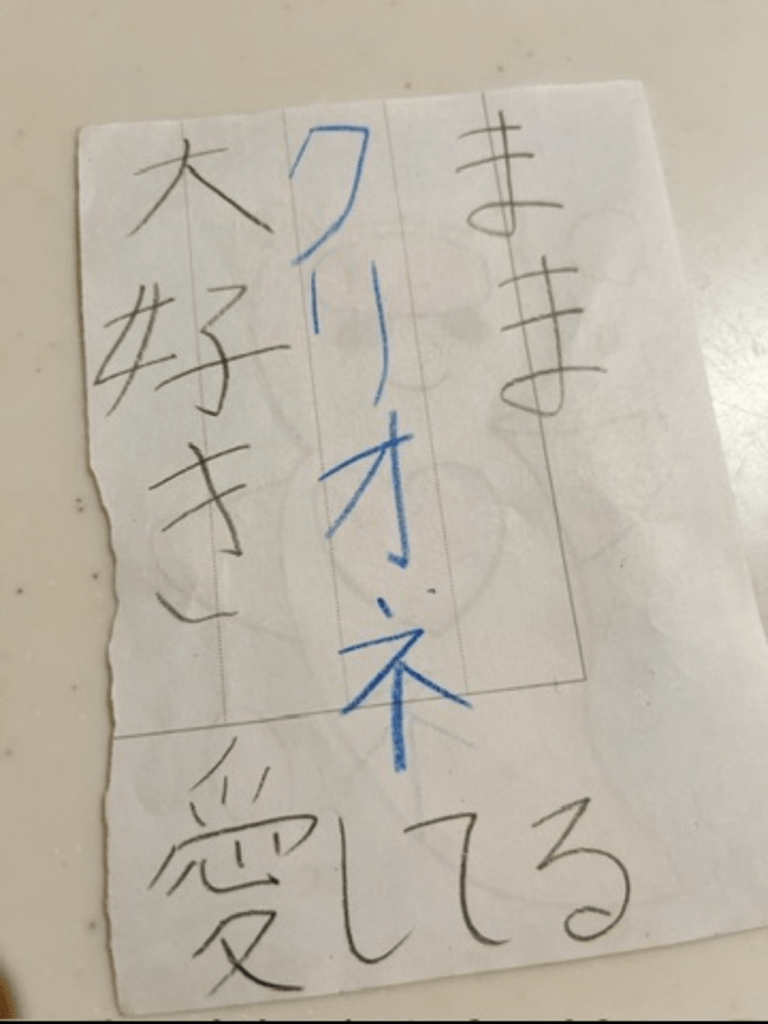 まま
クリオネ
大好き
愛してる